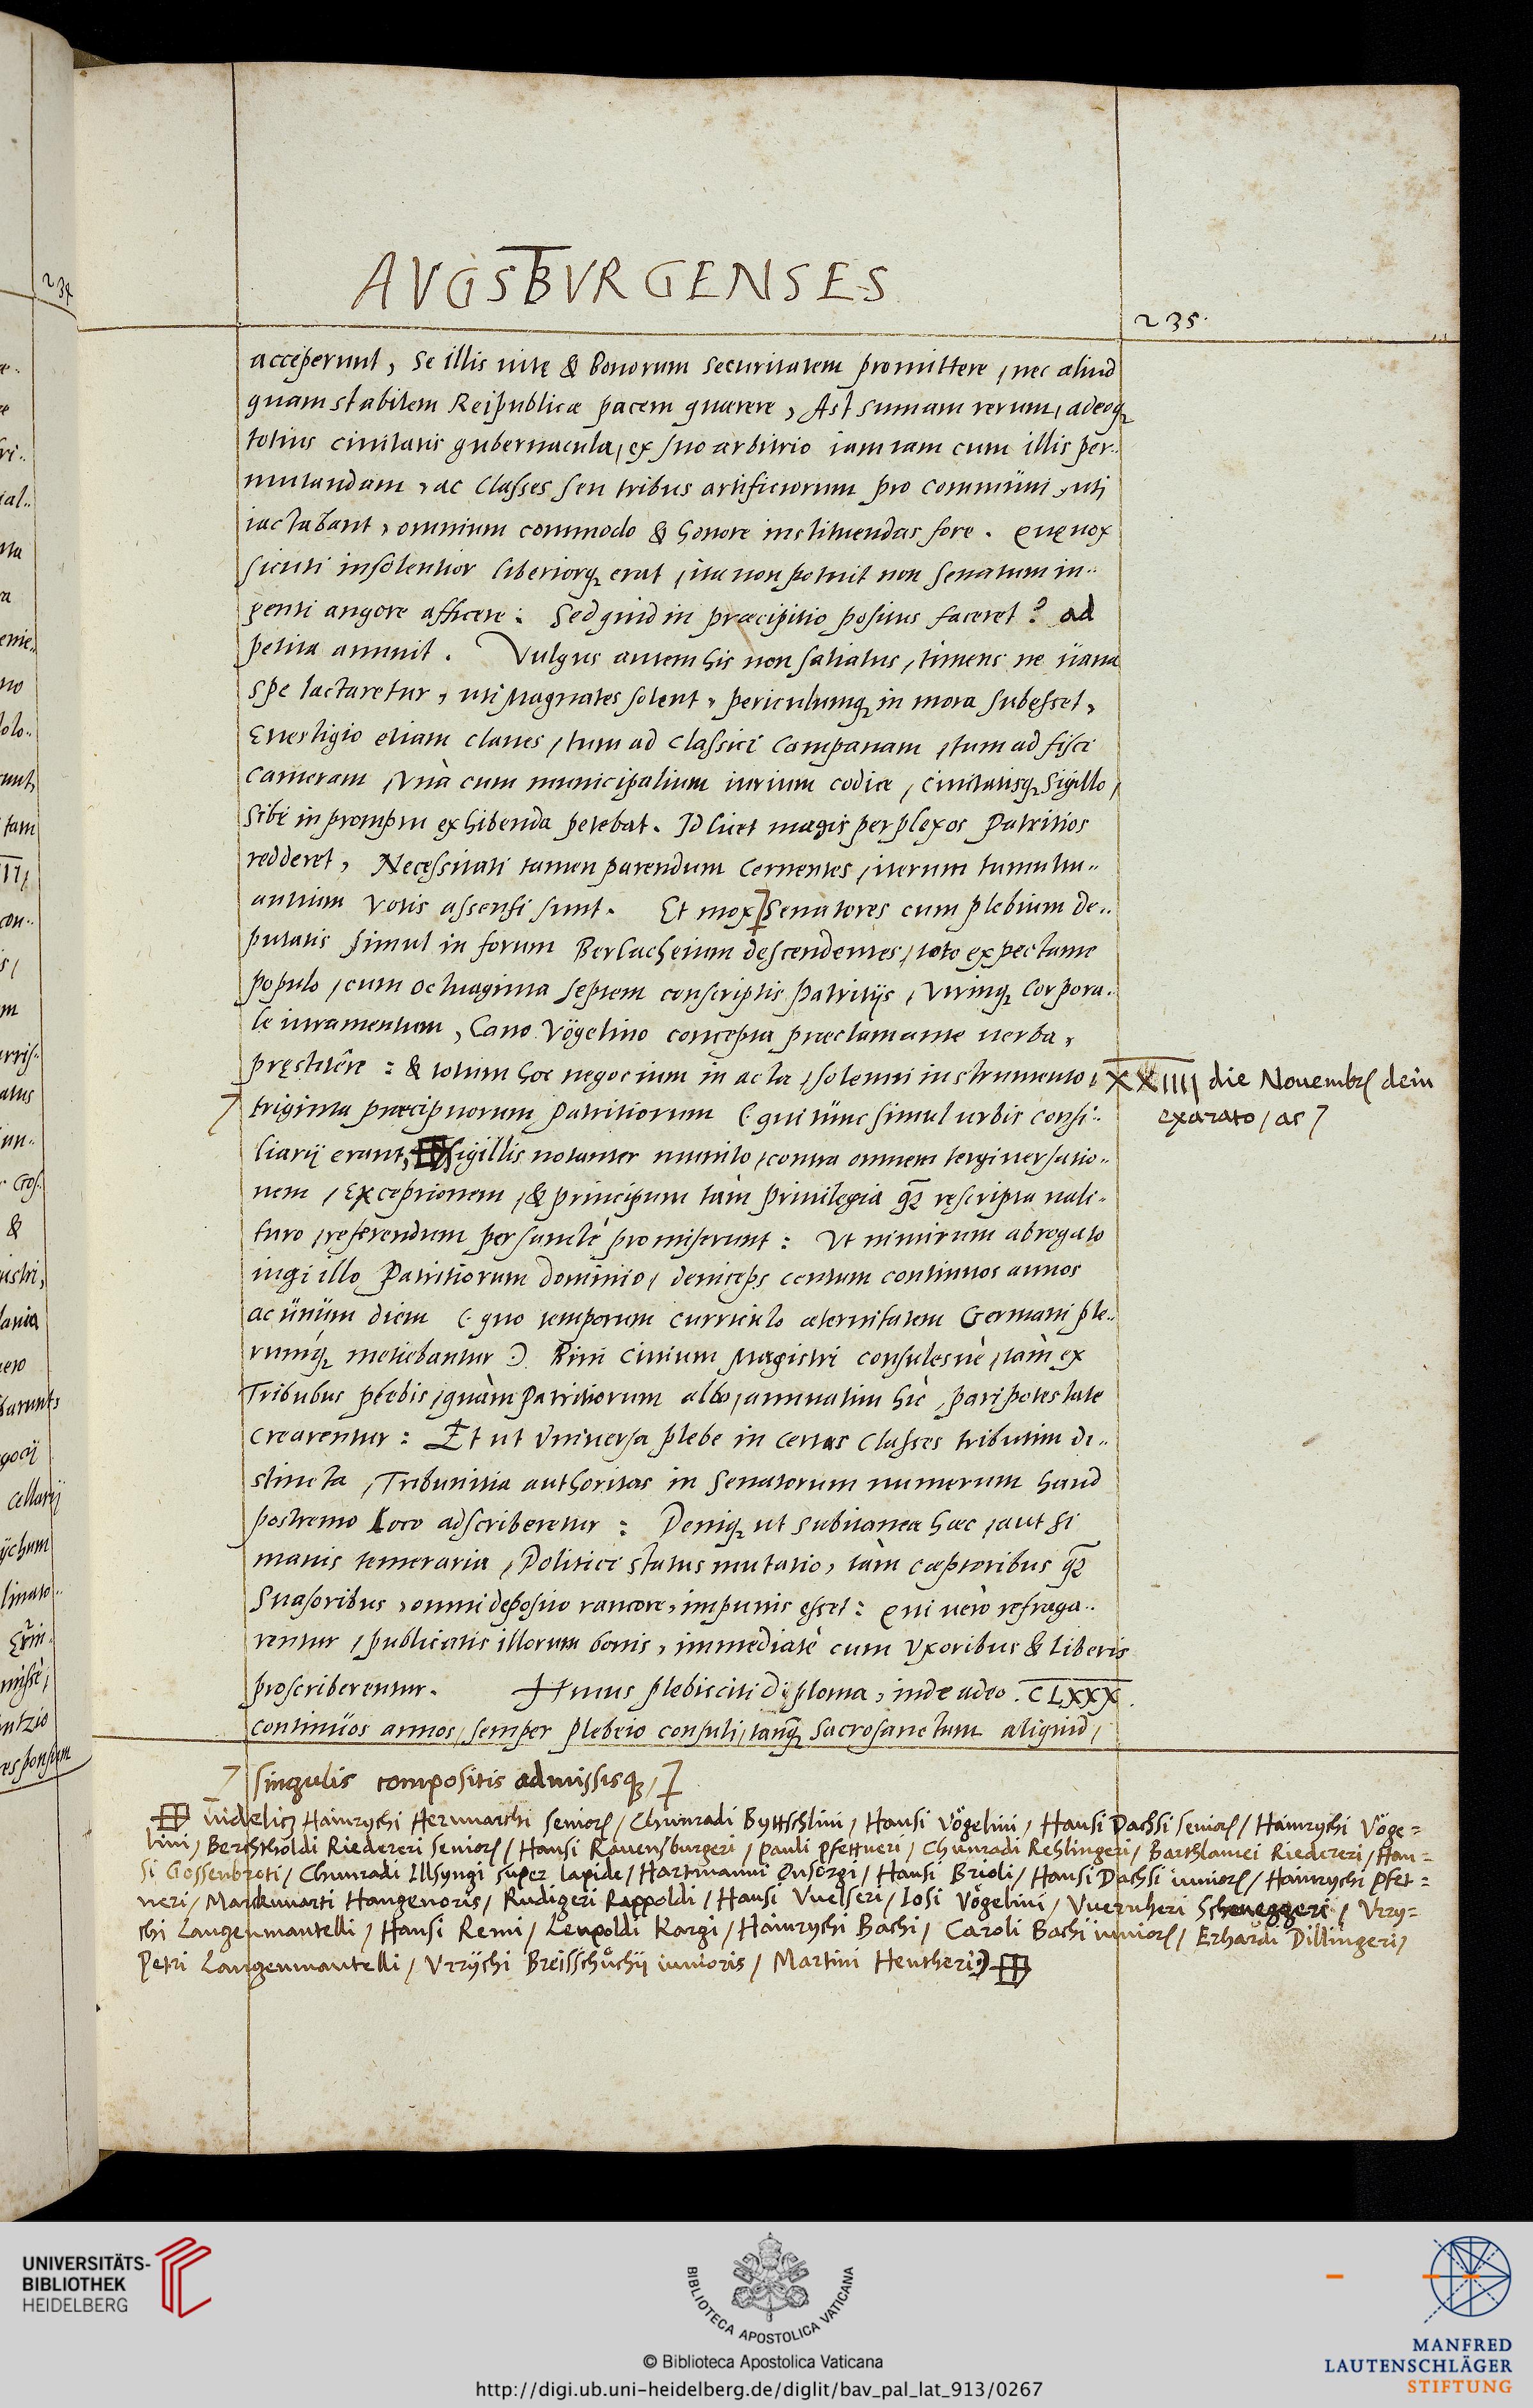 AVGSBVRGENSES
235.
acceperunt, Se illis uitę & bonorum securitatem promittere, nec aliud
quam stabilem Reipublicæ pacem quærere, Ast sumam rerum, adeoq₃
totius ciuitatis gubernacula, ex suo arbitrio iam iam cum illis per-
mutandam, ac Classes seu tribus artificiorum pro commüni, uti
iactabant, omnium commodo & honore instituendas fore. Quę uox
sicuti insolentior liberiorq₃ erat, ita non potuit non Senatum in-
genti angore afficere: Sed quid in præcipitio positus faceret? ad
petita annuit. Vulgus autem his non satiatus, timens ne üana
spe lactaretur, uti Magnates solent, periculumq₃ in mora subesset,
Euestigio etiam claues, tum ad Classici Campanam, tum ad fisci
Cameram, Vnà cum municipalium iurium codice, Ciuitatisq₃ Sigillo,
Sibi in promptu exhibenda petebat. Id licet magis perplexos Patritios
redderet, Necessitati tamen parendum Cernentes, iterum tumultu-
antium Votis assensi sunt. Et mox Senatores cum plebium de-
putatis simul in forum Berlacheium descendentes, toto expectante
populo, cum octuaginta septem conscriptis patritijs, Vtrinq₃ Corpora-
le iuramentum, Cano Vögelino concepta præclamante uerba,
pręstitêre: & totum hoc negocium in acta, solenni instrumento,
XXIIII die Nouembr dein
exarato, ac
triginta præcipuorum Patritiorum (: qui tünc simul urbis consi-
liarij erant, Sigillis notanter munito, contra omnem tergiuersatio-
nem, Exceptionem, & principum tàm Priuilegia q̃₃ rescripta uali-
turo, referendum persanctè promiserunt: Vt nimirum abrogato
iugi illo Patritiorum dominio, deinceps centum continuos annos
ac ünüm diem (: quo temporum curriculo æternitatem Germani ple-
rumq́₃ metiebantur :) Bini Ciuium Magistri consulesuè, tàm ex
Tribubus plebis, quàm Patritiorum albo, annuatim hìc, pari potestate
crearentur: Et ut Vniuersa plebe in certas Classes tributim di-
stincta, Tribunitia authoritas in Senatorum numerum haud
postremo loco adscriberetur: Deniq₃ ut subitanea hæc, aut si
mauis temeraria, Politici status mutatio, tàm cæptoribus q̃₃
Suasoribus, omni deposito rancore, impunis esset: Qui uerò refraga-
rentur, publicatis illorum bonis, immediatè cum Vxoribus & liberis
proscriberentur. Huius plebisciti diploma, inde adeo .CLXXX.
continüos annos, semper plebeio consuli, tanq̃₃ Sacrosanctum aliquid,
singulis compositis admissisq₃,
uidelic₃ Hainrychi Heruuarthi senior, Chunradi Byttschlini, Hansi Vögelini, Hansi Dachsi senior, Hainrychi Vöge=
lini, Berchtholdi Riedereri senior, Hansi Rauensburgeri, Pauli Pfettneri, Chunradi Rehlingeri, Barthlamei Riedereri, Han=
si Gossenbroti, Chunradi Illsyngi super lapide, Hartmanni Onsorgi, Hansi Brioli, Hansi Dachsi iunior, Hainrychi Pfet=
neri, Markuuarti Hangenoris, Rudigeri Rappoldi, Hansi Vuelseri, Iosi Vögelini, Vuernheri Scheneggeri, Vrry=
chi Langenmantelli, Hansi Remi, Leupoldi Kargi, Hainrychi Bachi, Caroli Bachi iunior, Erhardi Dillingeri,
Petri Langenmantelli, Vrrychi Breisschůchij iunioris, Martini Hentheri:)
UNIVERSITÄTS-
BIBLIOTHEK
HEIDELBERG
BIBLIOTECA APOSTOLICA VATICANA
© Biblioteca Apostolica Vaticana
http://digi.ub.uni-heidelberg.de/diglit/bav_pal_lat_913/0267
MANFRED
LAUTENSCHLÄGER
STIFTUNG